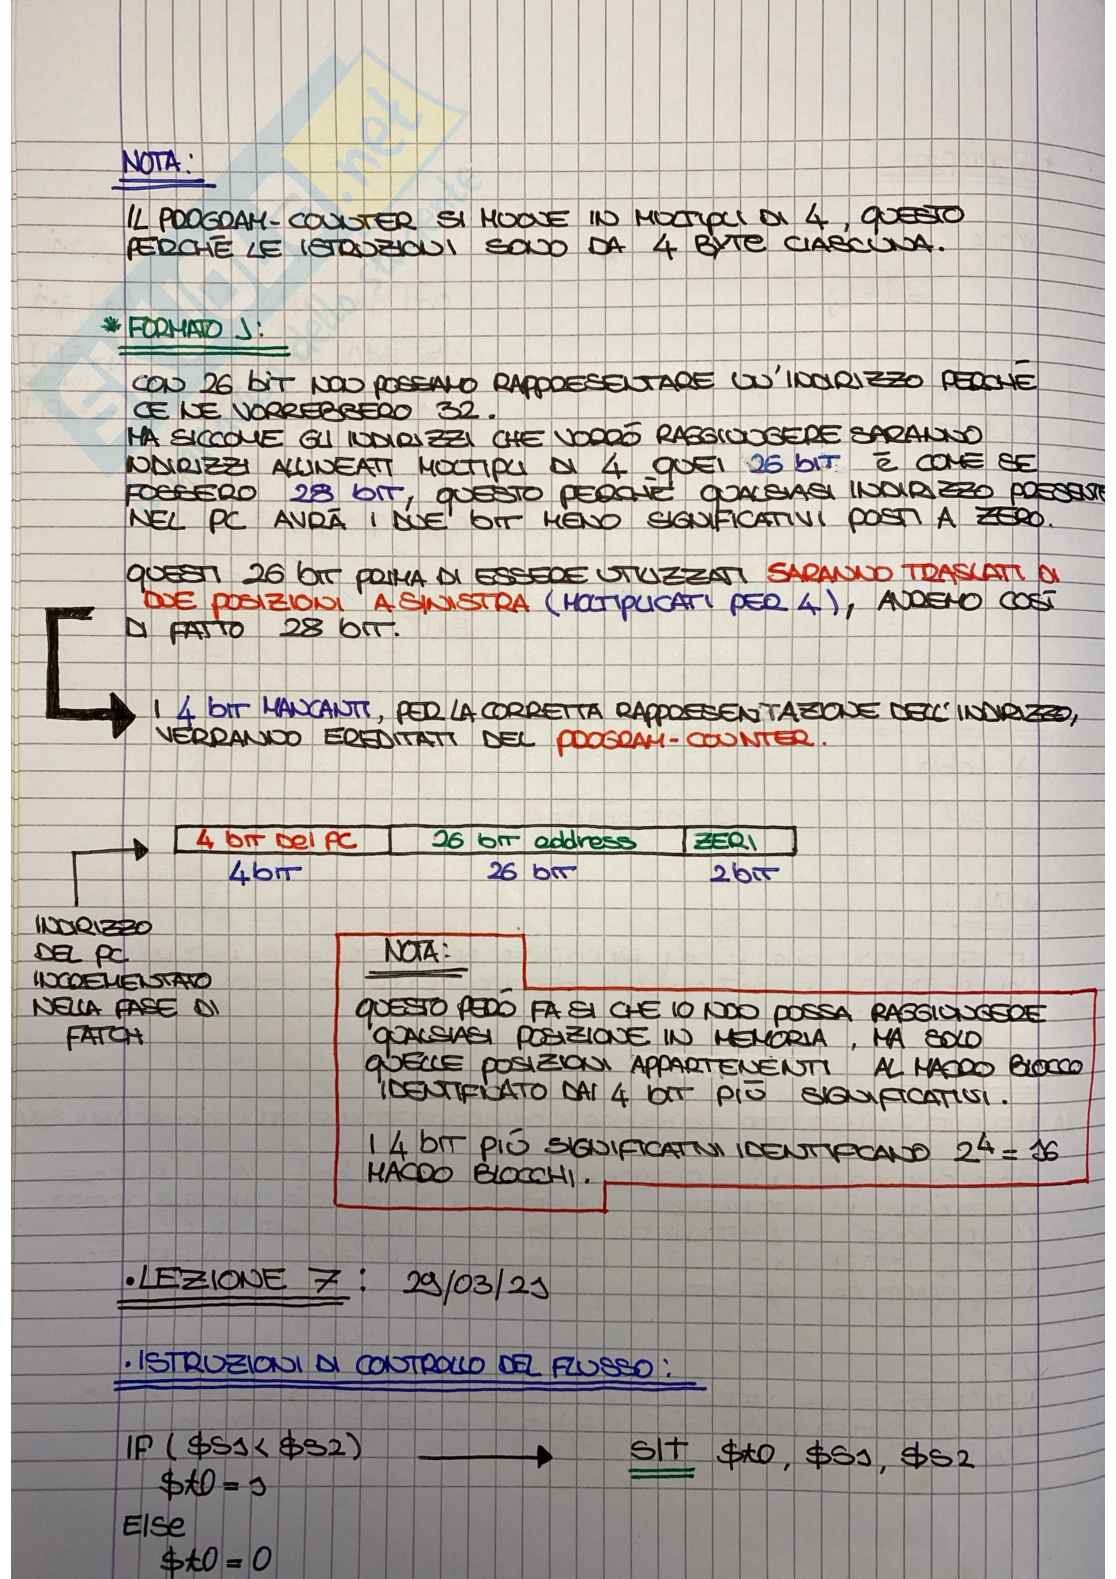 NOTA:
IL PROGRAM-COUNTER SI MUOVE IN MULTIPLI DI 4, QUESTO
PERCHÈ LE ISTRUZIONI SONO DA 4 BYTE CIASCUNA.
* FORMATO J:
CON 26 bIT NON POSSIAMO RAPPRESENTARE UN'INDIRIZZO PERCHÈ
CE NE VORREBBERO 32.
MA SICCOME GLI INDIRIZZI CHE VORRÒ RAGGIUNGERE SARANNO
INDIRIZZI ALLINEATI MULTIPLI DI 4 QUEI 26 bIT È COME SE
FOSSERO 28 bIT, QUESTO PERCHÈ QUALSIASI INDIRIZZO PRESENTE
NEL PC AVRÀ I DUE bIT MENO SIGNIFICATIVI POSTI A ZERO.
QUESTI 26 bIT PRIMA DI ESSERE UTILIZZATI SARANNO TRASLATI DI
DUE POSIZIONI A SINISTRA (MOLTIPLICATI PER 4), AVREMO COSÌ
DI FATTO 28 bIT.
I 4 bIT MANCANTI, PER LA CORRETTA RAPPRESENTAZIONE DELL'INDIRIZZO,
VERRANNO EREDITATI DEL PROGRAM-COUNTER.
4 bIT Del PC 26 bIT address ZERI
4bIT 26 bIT 2bIT
INDIRIZZO
DEL PC
INCREMENTATO
NELLA FASE DI
FATCH
NOTA:
QUESTO PERÒ FA SI CHE IO NON POSSA RAGGIUNGERE
QUALSIASI POSIZIONE IN MEMORIA, MA SOLO
QUELLE POSIZIONI APPARTENENTI AL MACRO BLOCCO
IDENTIFICATO DAI 4 bIT PIÙ SIGNIFICATIVI.
I 4 bIT PIÙ SIGNIFICATIVI IDENTIFICANO 2⁴ = 16
MACRO BLOCCHI.
• LEZIONE 7: 29/03/21
• ISTRUZIONI DI CONTROLLO DEL FLUSSO:
IF ($S1 < $S2) slt $t0, $S1, $S2
$t0 = 1
Else
$t0 = 0